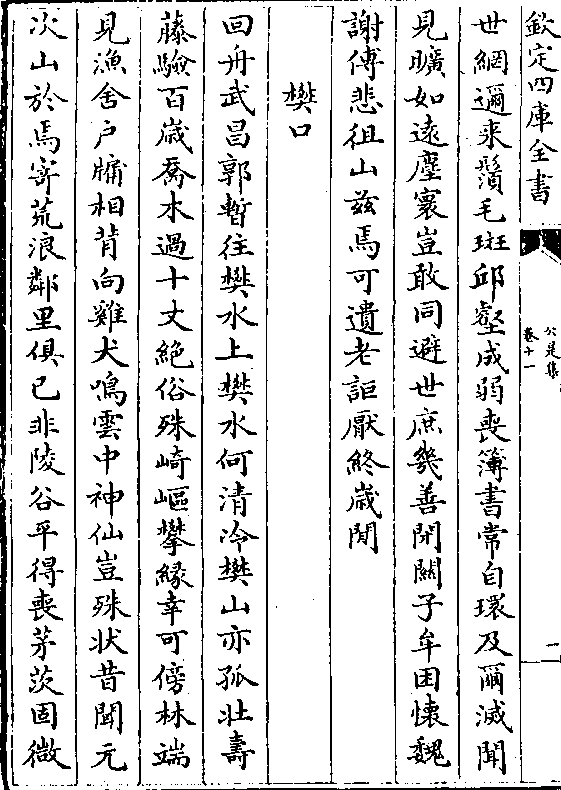 欽定四庫全書
公是集
卷十一
二
世網邇来鬚毛斑邱壑成弱喪簿書常自環及爾滅聞
見曠如遠塵寰豈敢同避世庶幾善閉關子牟困懷魏
謝傅悲徂山兹焉可遺老詎厭終嵗閒
樊口
回舟武昌郭暫往樊水上樊水何清冷樊山亦孤壯壽
藤驗百嵗喬木過十丈絶俗殊崎嶇攀緣幸可傍林端
見漁舍户牖相背向雞犬鳴雲中神仙豈殊状昔聞元
次山於焉寄荒浪鄰里俱已非陵谷平得喪茅茨固微